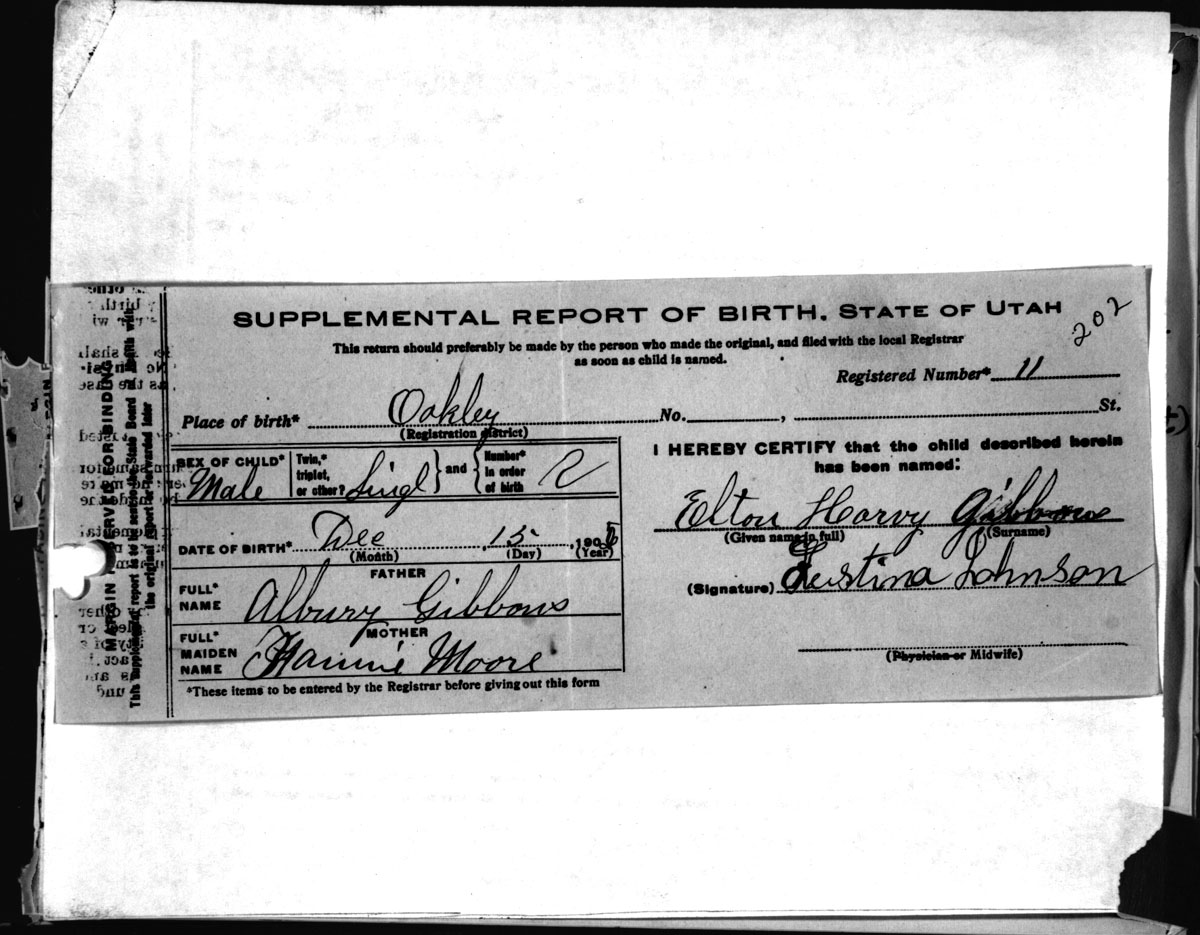 SUPPLEMENTAL REPORT OF BIRTH. STATE OF UTAH
202
This return should preferably be made by the person who made the original, and filed with the local Registrar
as soon as child is named.
Registered Number* 11
Place of birth* Oakley No. , St.
(Registration district)
SEX OF CHILD* Male
Twin,* triplet, or other? Singl } and { Number* in order of birth 2
DATE OF BIRTH* Dec 15 , 190
(Month) (Day) (Year)
FATHER
FULL* NAME Albury Gibbons
MOTHER
FULL* MAIDEN NAME Hannie Moore
*These items to be entered by the Registrar before giving out this form
I HEREBY CERTIFY that the child described herein
has been named:
Elton Harvy Gibbons
(Given name in full) (Surname)
(Signature) Justina Johnson
(Physician or Midwife)
MARGIN RESERVED FOR BINDING
This supplemental report is to be sent to the State Board of Health with
the original report or forwarded later